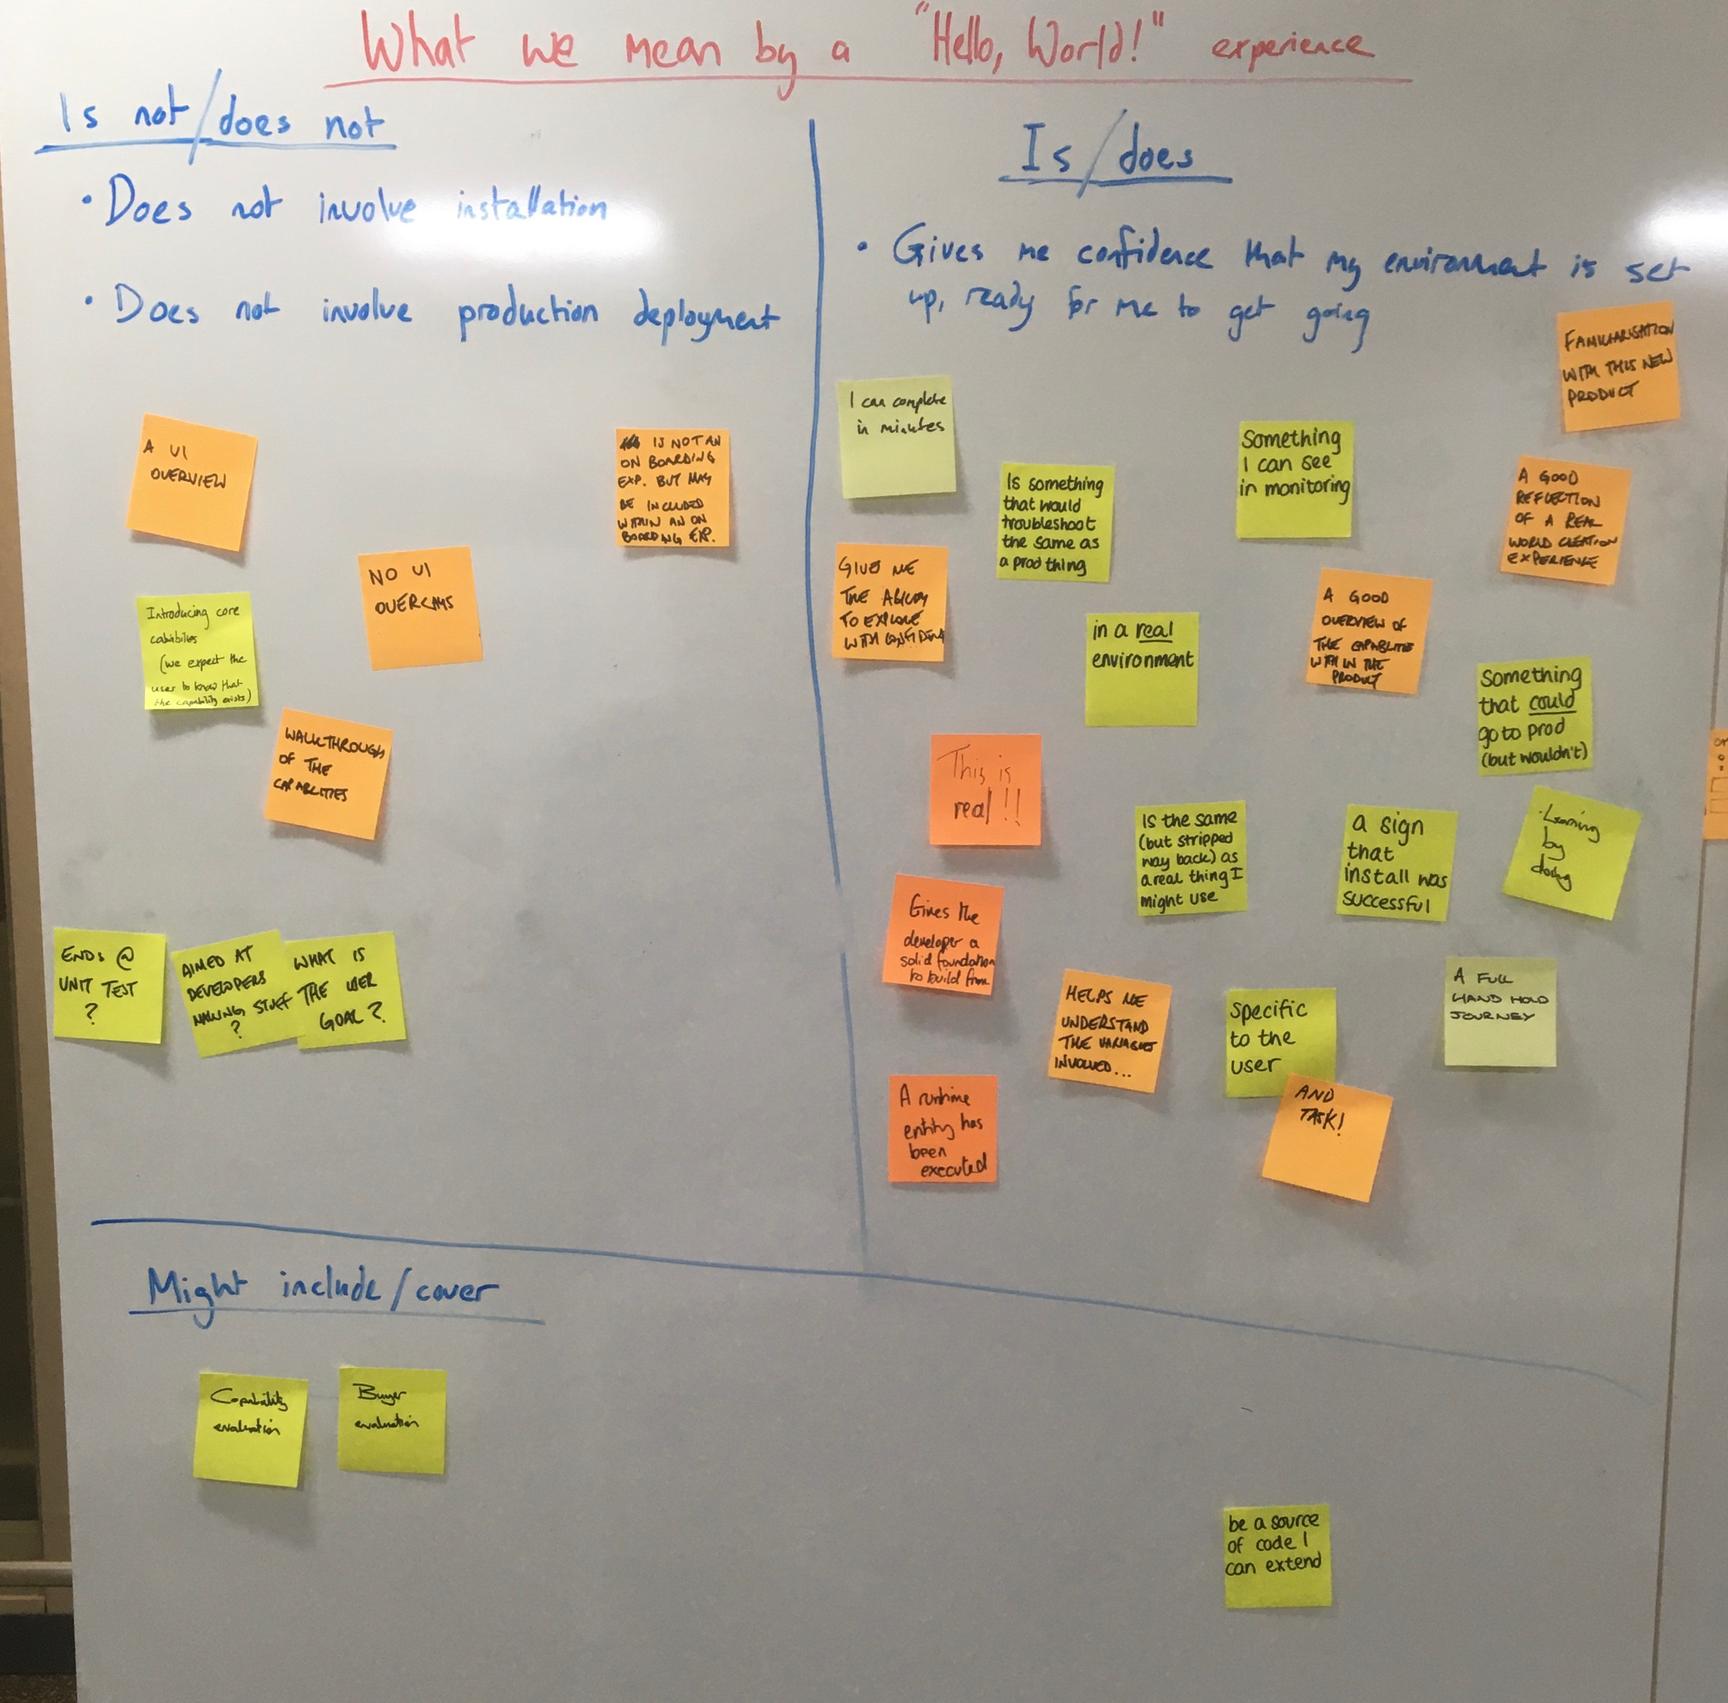 What we mean by a "Hello, World!" experience
Is not/does not
• Does not involve installation
• Does not involve production deployment
A UI
OVERVIEW
IS NOT AN
ON BOARDING
EXP. BUT MAY
BE INCLUDED
WITHIN AN ON
BOARDING EXP.
NO UI
Introducing core
capabilities
(we expect the
user to know that
the capability exists)
WALKTHROUGH
OF THE
CAPABILITIES
ENDS @
UNIT TEST
?
AIMED AT
DEVELOPERS
MAKING STUFF
?
WHAT IS
THE USER
GOAL?
Is/does
• Gives me confidence that my environment is set
up, ready for me to get going
FAMILIARISATION
WITH THIS NEW
PRODUCT
I can complete
in minutes
Something
I can see
in monitoring
Is something
that would
troubleshoot
the same as
a prod thing
A GOOD
REFLECTION
OF A REAL
WORLD CREATION
EXPERIENCE
GIVE ME
THE ABILITY
TO EXPLORE
WITH CONFIDENCE
A GOOD
OVERVIEW OF
THE CAPABILITIES
WITHIN THE
PRODUCT
in a real
environment
Something
that could
go to prod
(but wouldn't)
This is
real!!
Is the same
(but stripped
way back) as
a real thing I
might use
a sign
that
install was
successful
• Learning
by
doing
Gives the
developer a
solid foundation
to build from
HELPS ME
UNDERSTAND
THE VARIABLES
INVOLVED...
specific
to the
user
AND
TASK!
A FULL
HAND HOLD
JOURNEY
A runtime
entity has
been
executed
Might include/cover
Capability
evaluation
Buyer
evaluation
be a source
of code I
can extend